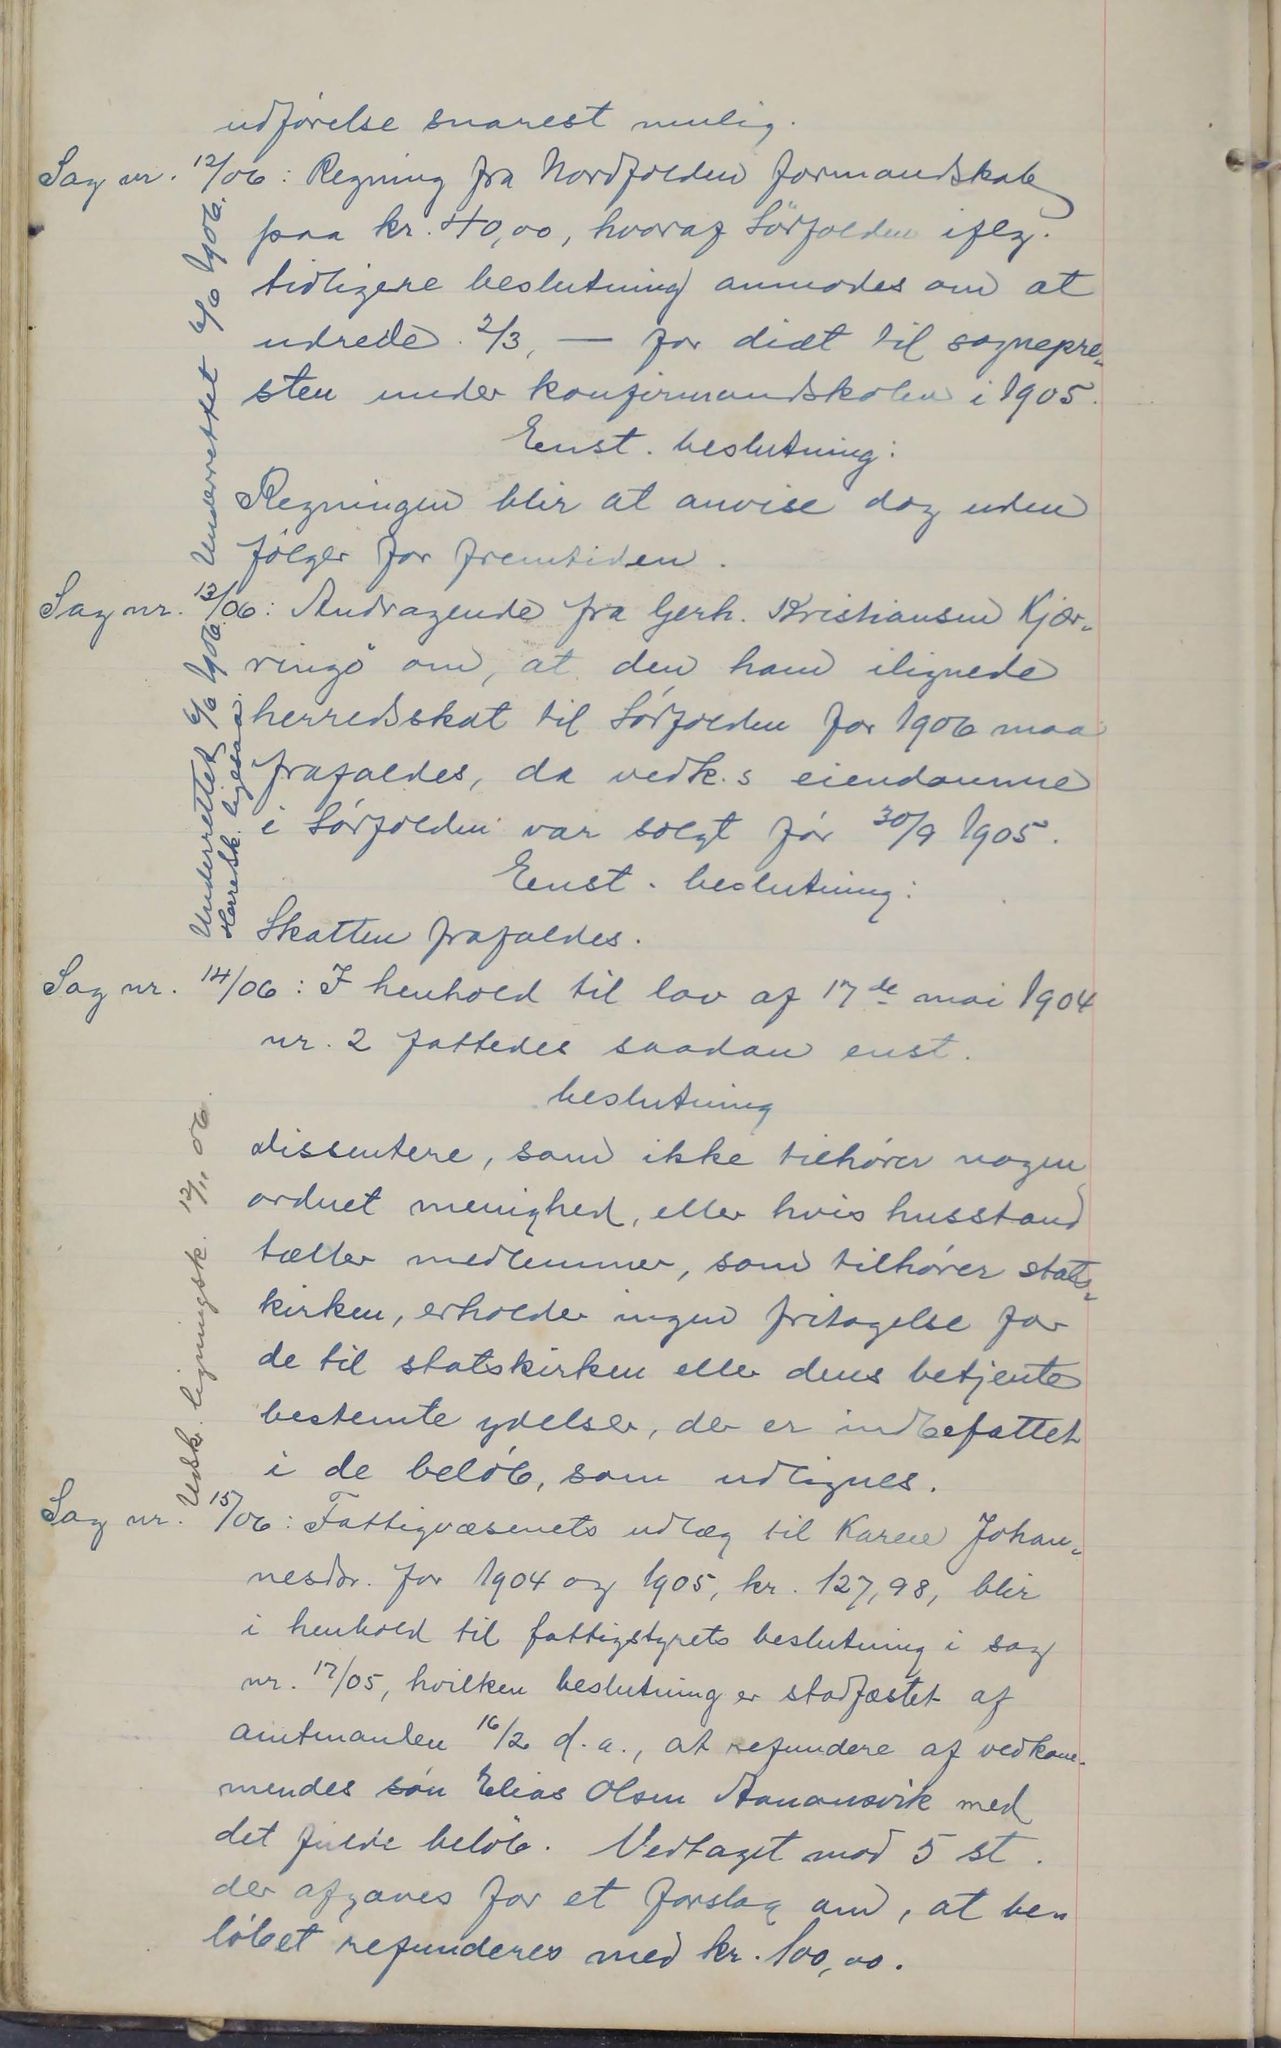 udförelse snarest mulig.
Sag nr. 12/06: Regning fra Nordfolden formandskab
paa kr. 40,00, hvoraf Sörfolden iflg.
tidligere beslutning anmodes om at
udrede 2/3, — for diæt til sognepre-
sten under konfirmandskolen i 1905.
Enst. beslutning:
Regningen blir at anvise dog uden
følger for fremtiden.
Underrettet 6/6 1906.
Sag nr. 13/06: Andragende fra Gerh. Kristiansen Kjær-
ringö om, at den ham ilignede
herredsskat til Sörfolden for 1906 maa
frafaldes, da vedk.s eiendomme
i Sörfolden var solgt för 30/9 1905.
Enst. beslutning:
Skatten frafaldes.
Underrettet 6/6 1906.
Herredsk. ligesaa.
Sag nr. 14/06: I henhold til lov af 17de mai 1904
nr. 2 fattedes saadan enst.
beslutning
dissentere, som ikke tilhører nogen
ordnet menighed, eller hvis husstand
tæller medlemmer, som tilhører stats-
kirken, erholder ingen fritagelse for
de til statskirken eller dens betjente
bestemte ydelser, der er indbefattet
i de beløb, som udlignes.
Udsk. ligningsk. 12/11 06.
Sag nr. 15/06: Fattigvæsenets udlæg til Karen Johan-
nesdr. for 1904 og 1905, kr. 127,98, blir
i henhold til fattigstyrets beslutning i sag
nr. 17/05, hvilken beslutning er stadfæstet af
amtmanden 16/2 d.a., at refundere af vedkom-
mendes sön Elias Olsen med
det fulde belöb. Vedtaget mod 5 st.
der afgaves for et forslag om, at be-
löbet refunderes med kr. 100,00.